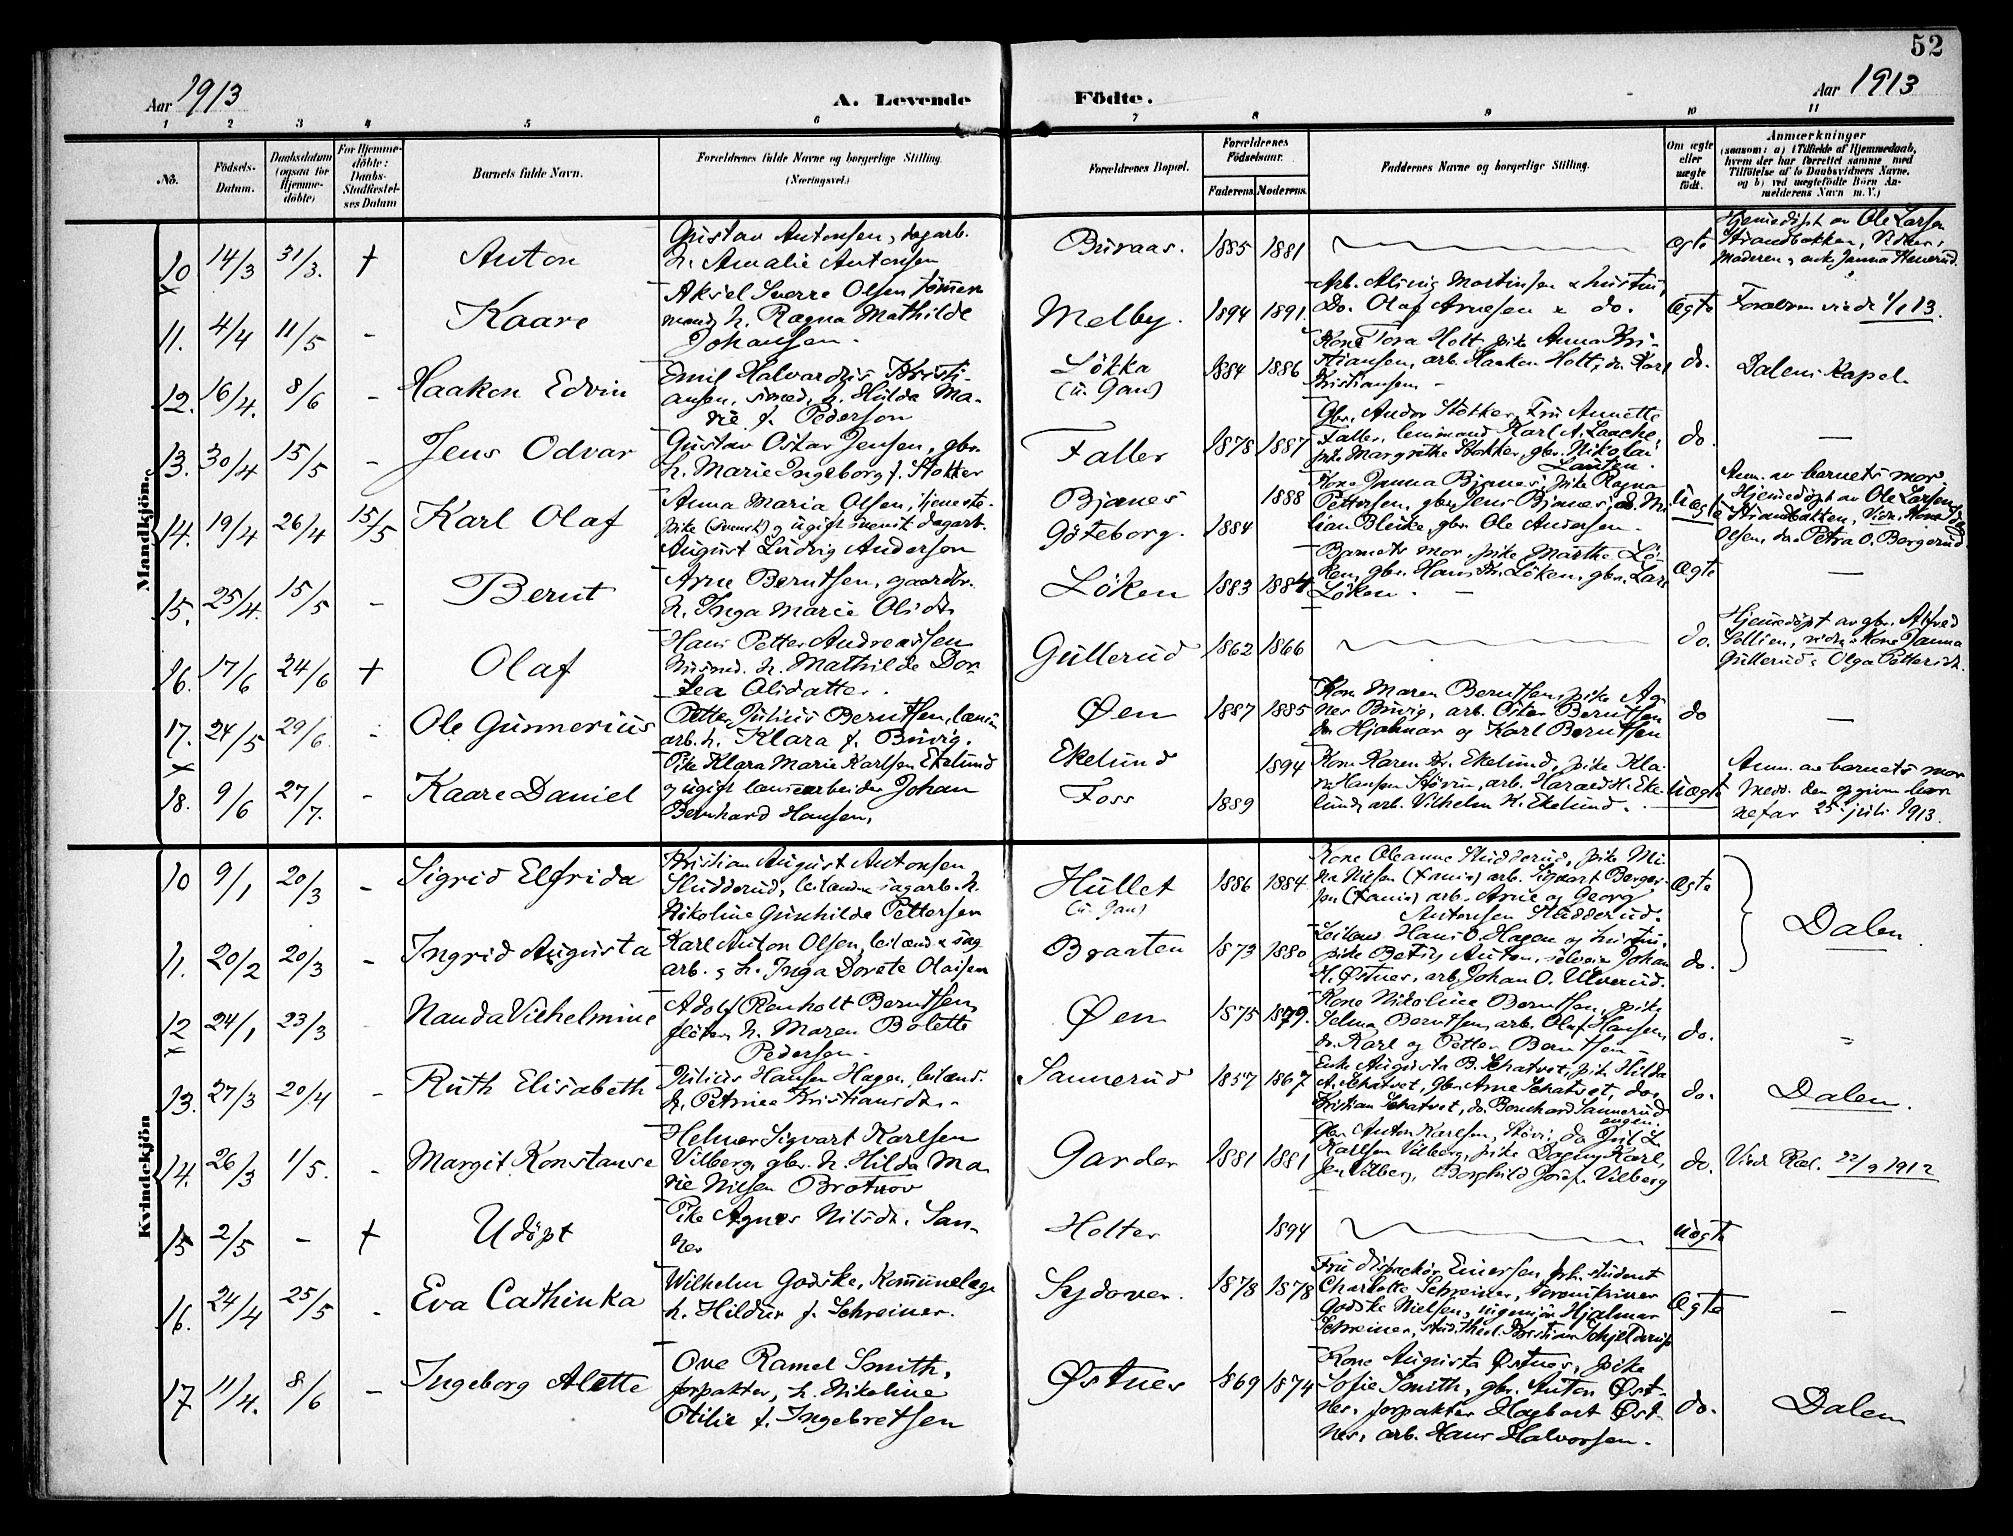 52
Aar 1913
A. Levende
Födte.
Aar 1913
1 2 3 4 5 6 7 8 9 10 11
No.
Födsels-
Datum.
Daabsdatum
(ogsaa for
Hjemme-
döbte)
For Hjemme-
döbte:
Daabs-
Stadfæstel-
ses Datum
Barnets fulde Navn.
Forældrenes fulde Navne og borgerlige Stilling.
(Næringsvei.)
Forældrenes Bopæl.
Forældrenes
Födselsaar.
Faderens. Moderens.
Faddernes Navne og borgerlige Stilling.
Om ægte
eller
uægte
födt.
Anmærkninger
(saasom: a) i Tilfælde af Hjemmedaab,
hvem der har forrettet samme, med
Tilföielse af to Daabsvidners Navne,
og b) ved uægtefödte Börn An-
melderens Navn m. V.)
Mandkjön.
10 14/3 31/3. + Anton
Gustav Antonsen, dagarb.
h. Amalie Antonsen
Buraas. 1885 1881 ægte
Hjemedöpt av Ole Larsen
Strandbakken, Vidner:
Moderen, enk. Janna Stuerud.
11. 4/4 11/5 - Kaare
Aksel Sverre Olsen tömmer
mand, h. Ragna Mathilde
Johansen.
Melby. 1894 1891.
Arb. Alivig Martinsen & hustru,
Do. Olaf Arnesen & do.
Ægte
Forældrene viede 1/1 13.
12. 16/4. 8/6 - Haakon Edvin
Emil Halvardsis Kristi-
ansen, smed, h. Hilda Ma-
rie f. Pederson
Lökka
(u. Gan)
1884 1886
Kone Tora Holt, pike Anna Kri-
stiansen, arb. Haakon Holt, do Karl
Kristiansen -
do.
Dalens Kapel.
13. 30/4 15/5 - Jens Odvar
Gustav Oskar Jensen, gbr.
h. Marie Ingeborg f. Stokker
Faller 1878 1887
Gbr. Andor Stokker, Fru Annette
Faller, lensmand Karl A. Laache,
pike Margrethe Stokker, gbr. Nikolai
Lauten.
do. —
14. 19/4 26/4 15/5 Karl Olaf
Anna Maria Olsen, tjeneste-
pike (svensk) og ugift svensk dagarb.
August Ludvig Anderson
Bjanes
Göteborg.
1884 1888
Kone Janna Bjanes, pike Ragna
Pettersen, gbr. Jens Bjanes, do. M.
lian Bleike, gbr. Ole Andersen.
Uægte
Anm. av barnets mor.
Hjemedöpt av Ole Larsen
Strandbakken, Vidn. Kone
Olsen, do. Petra O. Bergerud
15. 25/4. 15/5 - Bernt
Arne Berntsen, gaardbr.
h. Inga Marie Olsdt.
Löken 1883 1884
Barnets mor, pike Marthe Lö-
ken, gbr. Hans Kr. Löken, gbr. Lars
Löken. -
Ægte —
16. 17/6 24/6 + Olaf
Hans Petter Andreassen
Husmd. h. Mathilde Dor-
tea Olsdatter.
Gullerud 1862 1866 do.
Hjemedöpt av gbr. Alfred
Sollien, vidn. Kone Janna
Gullerud & Olga Pettersen.
17. 24/5 29/6 - Ole Gunnerius
Petter Julius Berntsen, lænse
arb. h. Klara f. Buvig.
Øen 1887 1885
Kone Maren Berntsen, pike Ag-
nes Buvig, arb. Oskar Berntsen
do Hjalmar og Karl Berntsen
do —
18. 9/6 27/7. - Kaare Daniel
Pike Klara Marie Karlsen Ekelund
og ugift lænsearbeider Johan
Bernhard Hansen,
Ekelund
Foss
1889 1894
Kone Karen Kr. Ekelund, pike Kla-
ra Hansen Stövin, arb. Harald H. Eke-
lund, arb. Vilhelm K. Ekelund.
Uægte
Anm. av barnets mor
Medd. den opgivne bar-
nefar 25. juli 1913.
Kvindekjön
10 9/1 20/3 - Sigrid Elfrida
Kristian August Antonsen
Studderud, leilænd. sagarb. h.
Nikoline Gunhilde Pettersen
Hullet
(u. Gan)
1886 1884
Kone Oleanne Studderud, pike Mi-
na Nilsen (Fania) arb. Sigvart Berger-
sen (Fania) arb. Arne og Georg
Antonsen Studderud.
Ægte
Dalen.
11. 20/2 20/3 - Ingrid Augusta
Karl Anton Olsen, leilænd & sag
arb. & h. Inga Dorete Olaisen
Braaten 1873 1880
Leilænd Hans O. Hagen og hustru,
pike Betsy Auton, selveier Johan
H. Østnes, arb. Johan O. Ulverud.
do.
12 24/1 23/3 Nanda Vilhelmine
Adolf Renholt Berntsen,
flöter, h. Maren Bolette
Pedersen.
Øen 1875 1879.
Kone Nikoline Berntsen, pike
Selma Berntsen, arb. Olaf Hansen,
do. Karl og Petter Berntsen -
do. "
13. 27/3 20/4 - Ruth Elisabeth
Julius Hansen Hagen, leilænd.
h. Petrine Kristiansdt.
Sannerud 1857 1867
Enke Augusta B. Skatvet, pike Hilda
A. Skatvet, gbr. Arne Skatvet, do.
Kristian Skatvet, do. Bernhard Sannerud
engen.
do.
Dalen.
14. 26/3 1/5. - Margit Konstanse
Helmer Sigvart Karlsen
Vilberg, gbr. h. Hilda Ma-
rie Nilsen Brotnov
Garder 1881 1881
Gbr. Anton Karlsen, Stövi, do Juil L.
Karlsen Vilberg, pike Dagny Karl-
sen Vilberg, Borghild Josef. Vilberg
do.
Viede Ræl. 22/9 1912
15 2/5 - + Udöpt
Pike Agnes Nilsdt. San-
ner
Holter 1894 uægte
16. 24/4 25/5 - Eva Cathinka
Wilhelm Godske, Kommunelæge
h. Hildur f. Schreiner.
Sydover. 1878 1878
Fru dispachör Einersen, frk. student
Charlotte Schreiner, forvalter
Godske Nielsen, ingeniör Hjalmar
Schreiner, stud. theol. Kristian Schjelderup
Ægte —
17 11/4. 8/6 - Ingeborg Alette
Ove Ramel Smith,
forpakter, h. Nikoline
Otilie f. Ingebretsen
Østnes 1869 1874
Kone Augusta Østnes, pike
Sofie Smith, gbr. Anton Øst-
nes, forpakter Hagbart Øst-
nes, arb. Hans Halvorsen.
do.
Dalen